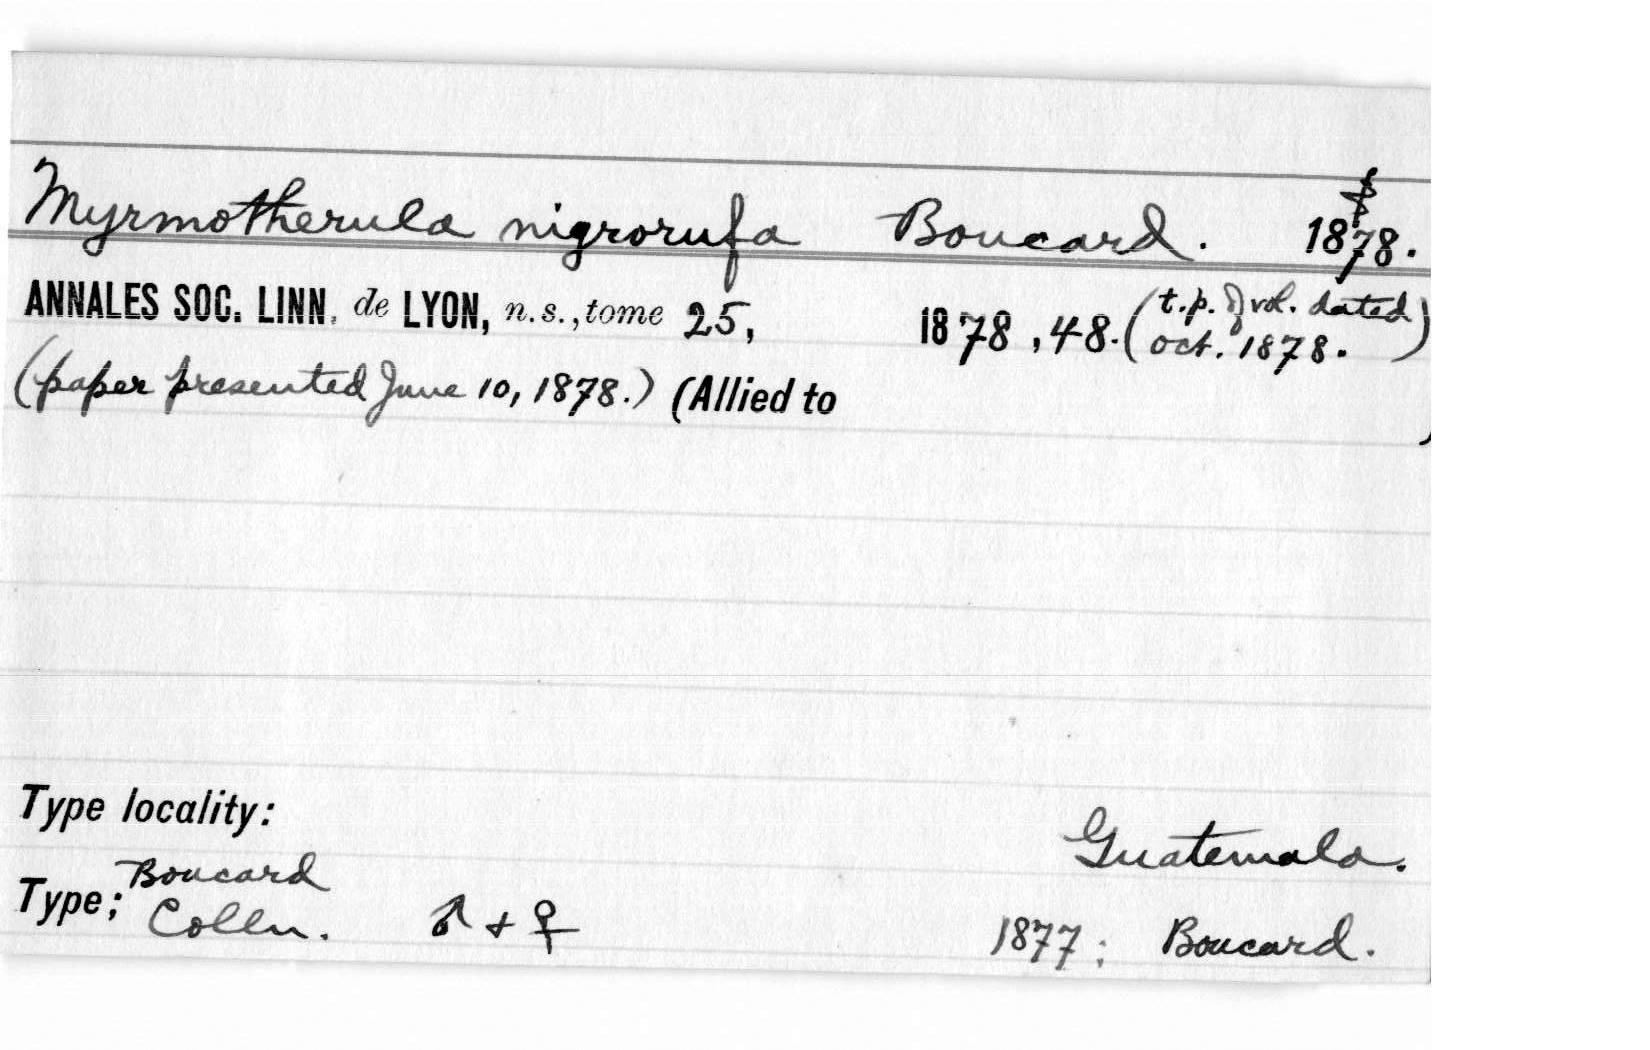 Myrmotherula nigrorufa Boucard. 1878.
ANNALES SOC. LINN. de LYON, n.s., tome 25, 1878, 48. (t.p. of vol. dated
oct. 1878.)
(paper presented June 10, 1878.) (Allied to
)
Type locality:
Guatemala.
Type; Boucard
Colln. ♂ + ♀ 1877; Boucard.